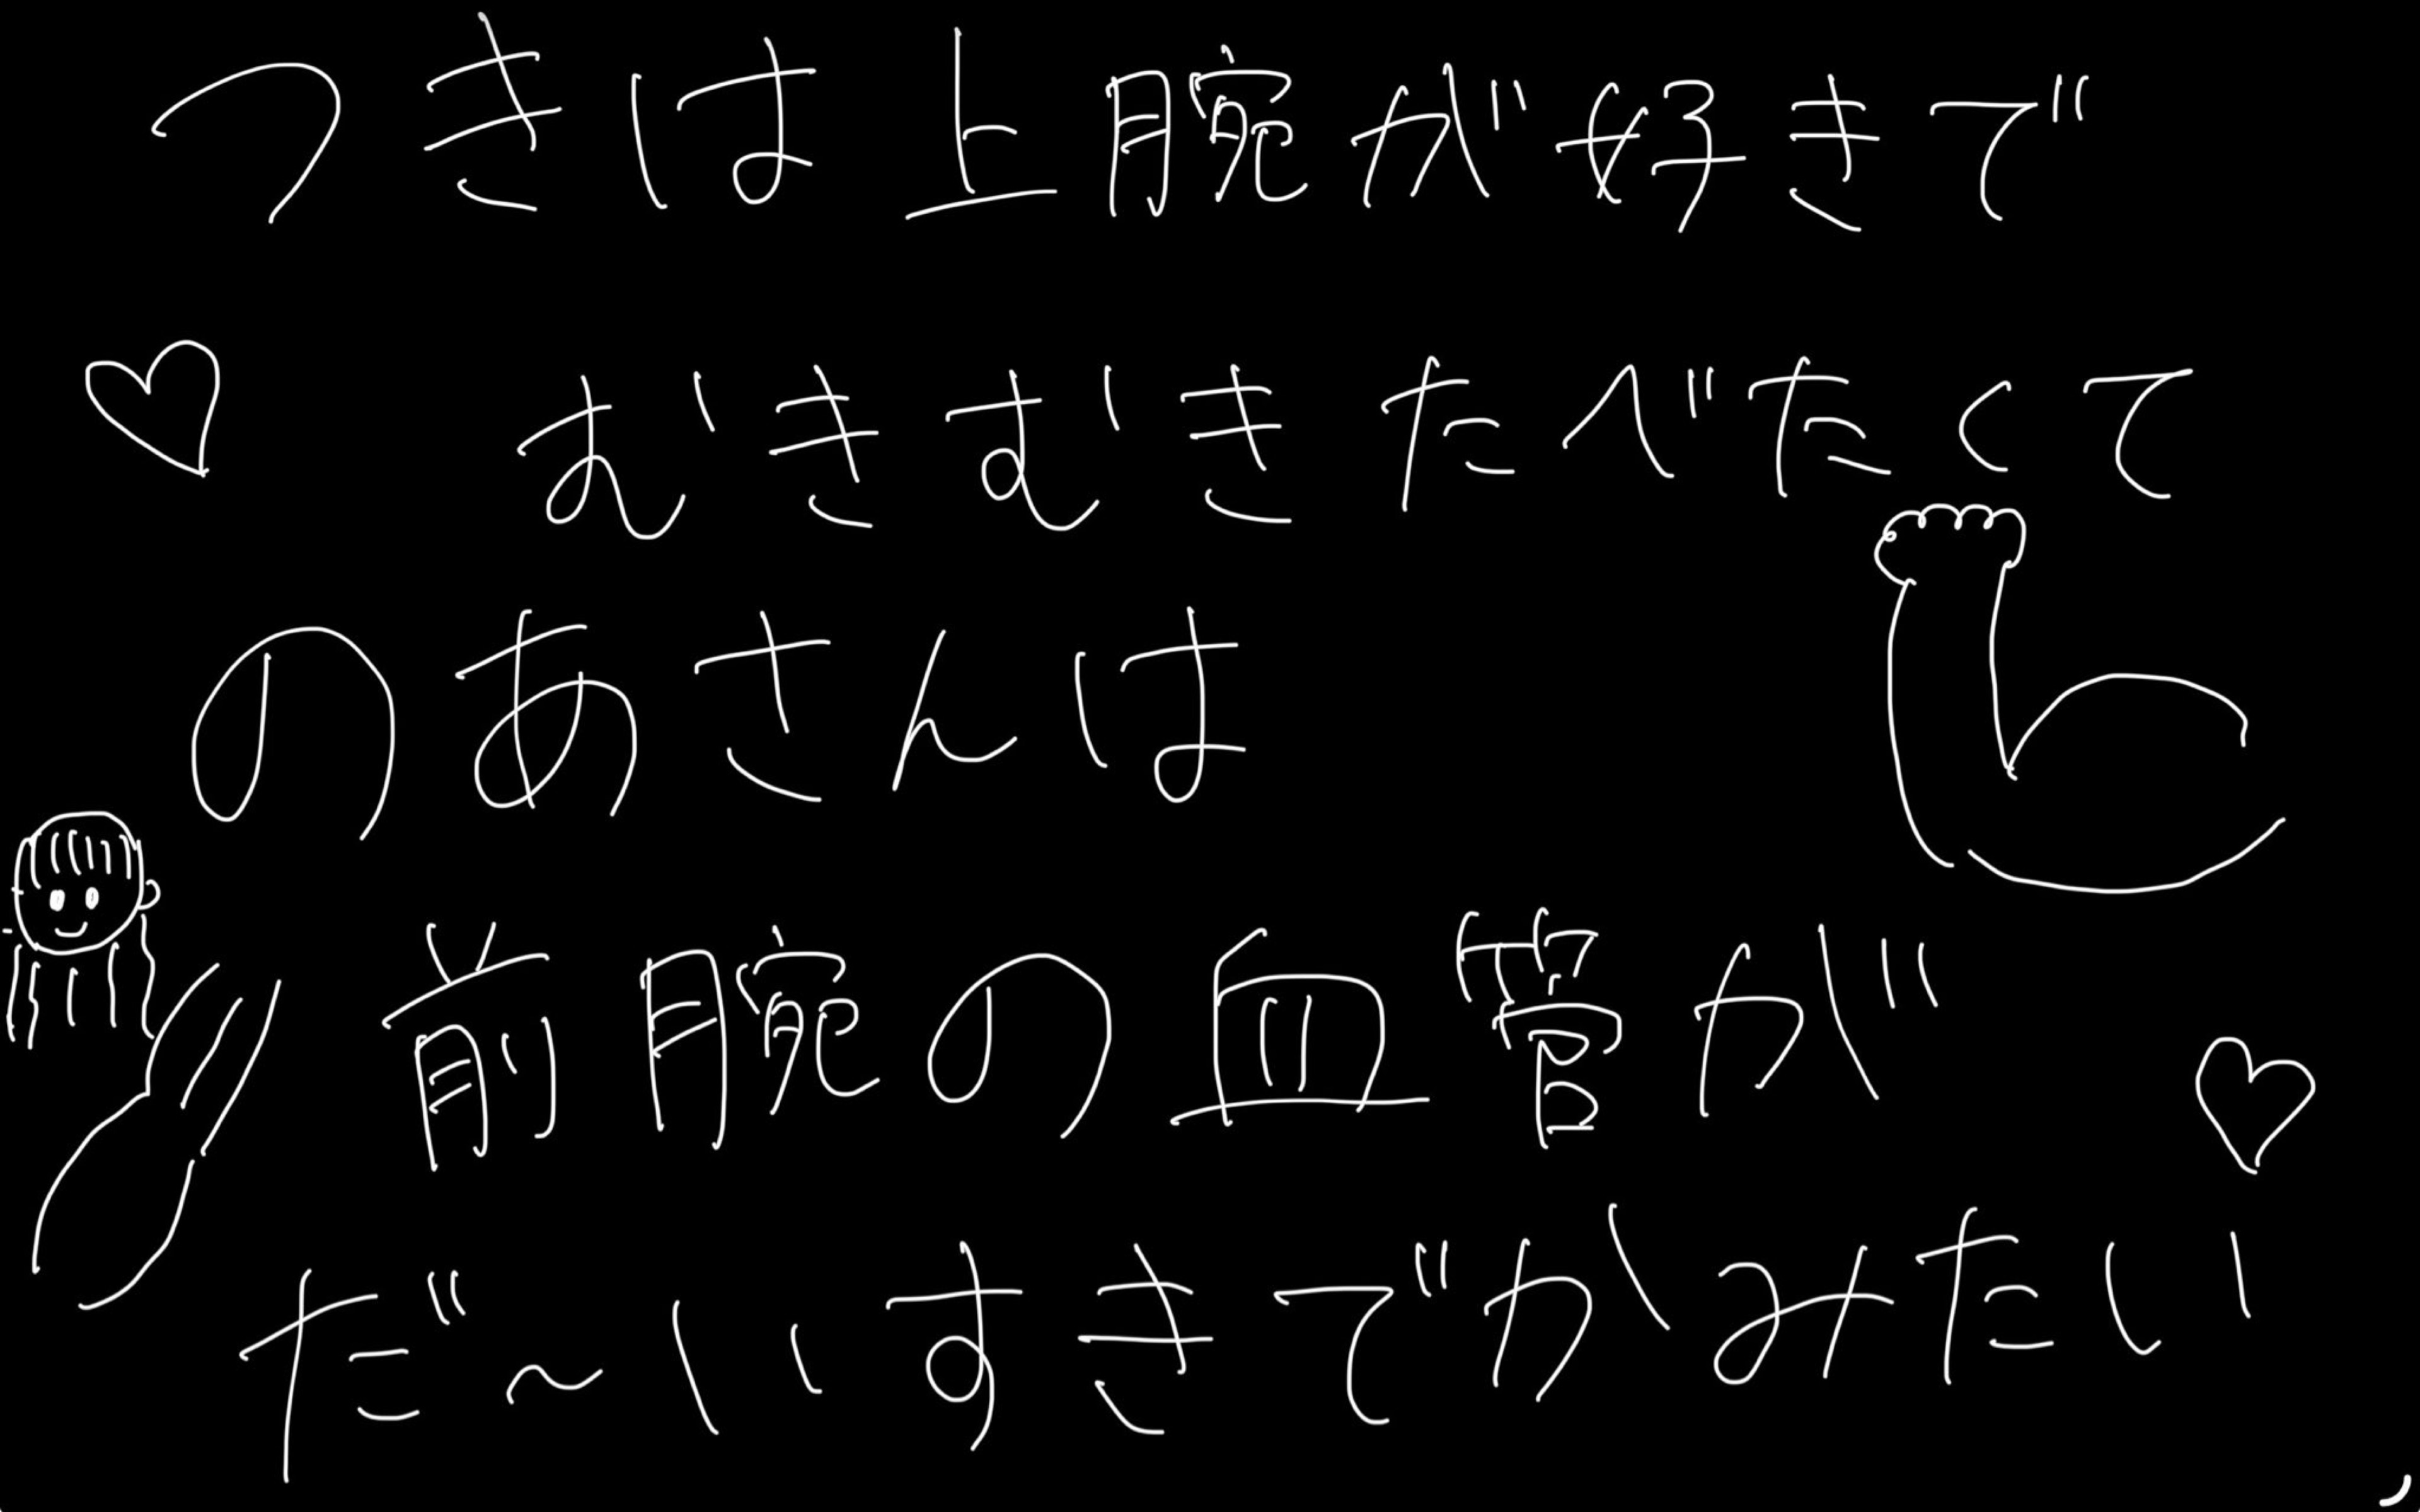 つきは上腕が好きで
むきむきたべたくて
のあさんは
前腕の血管が
だ～いすきでかみたい